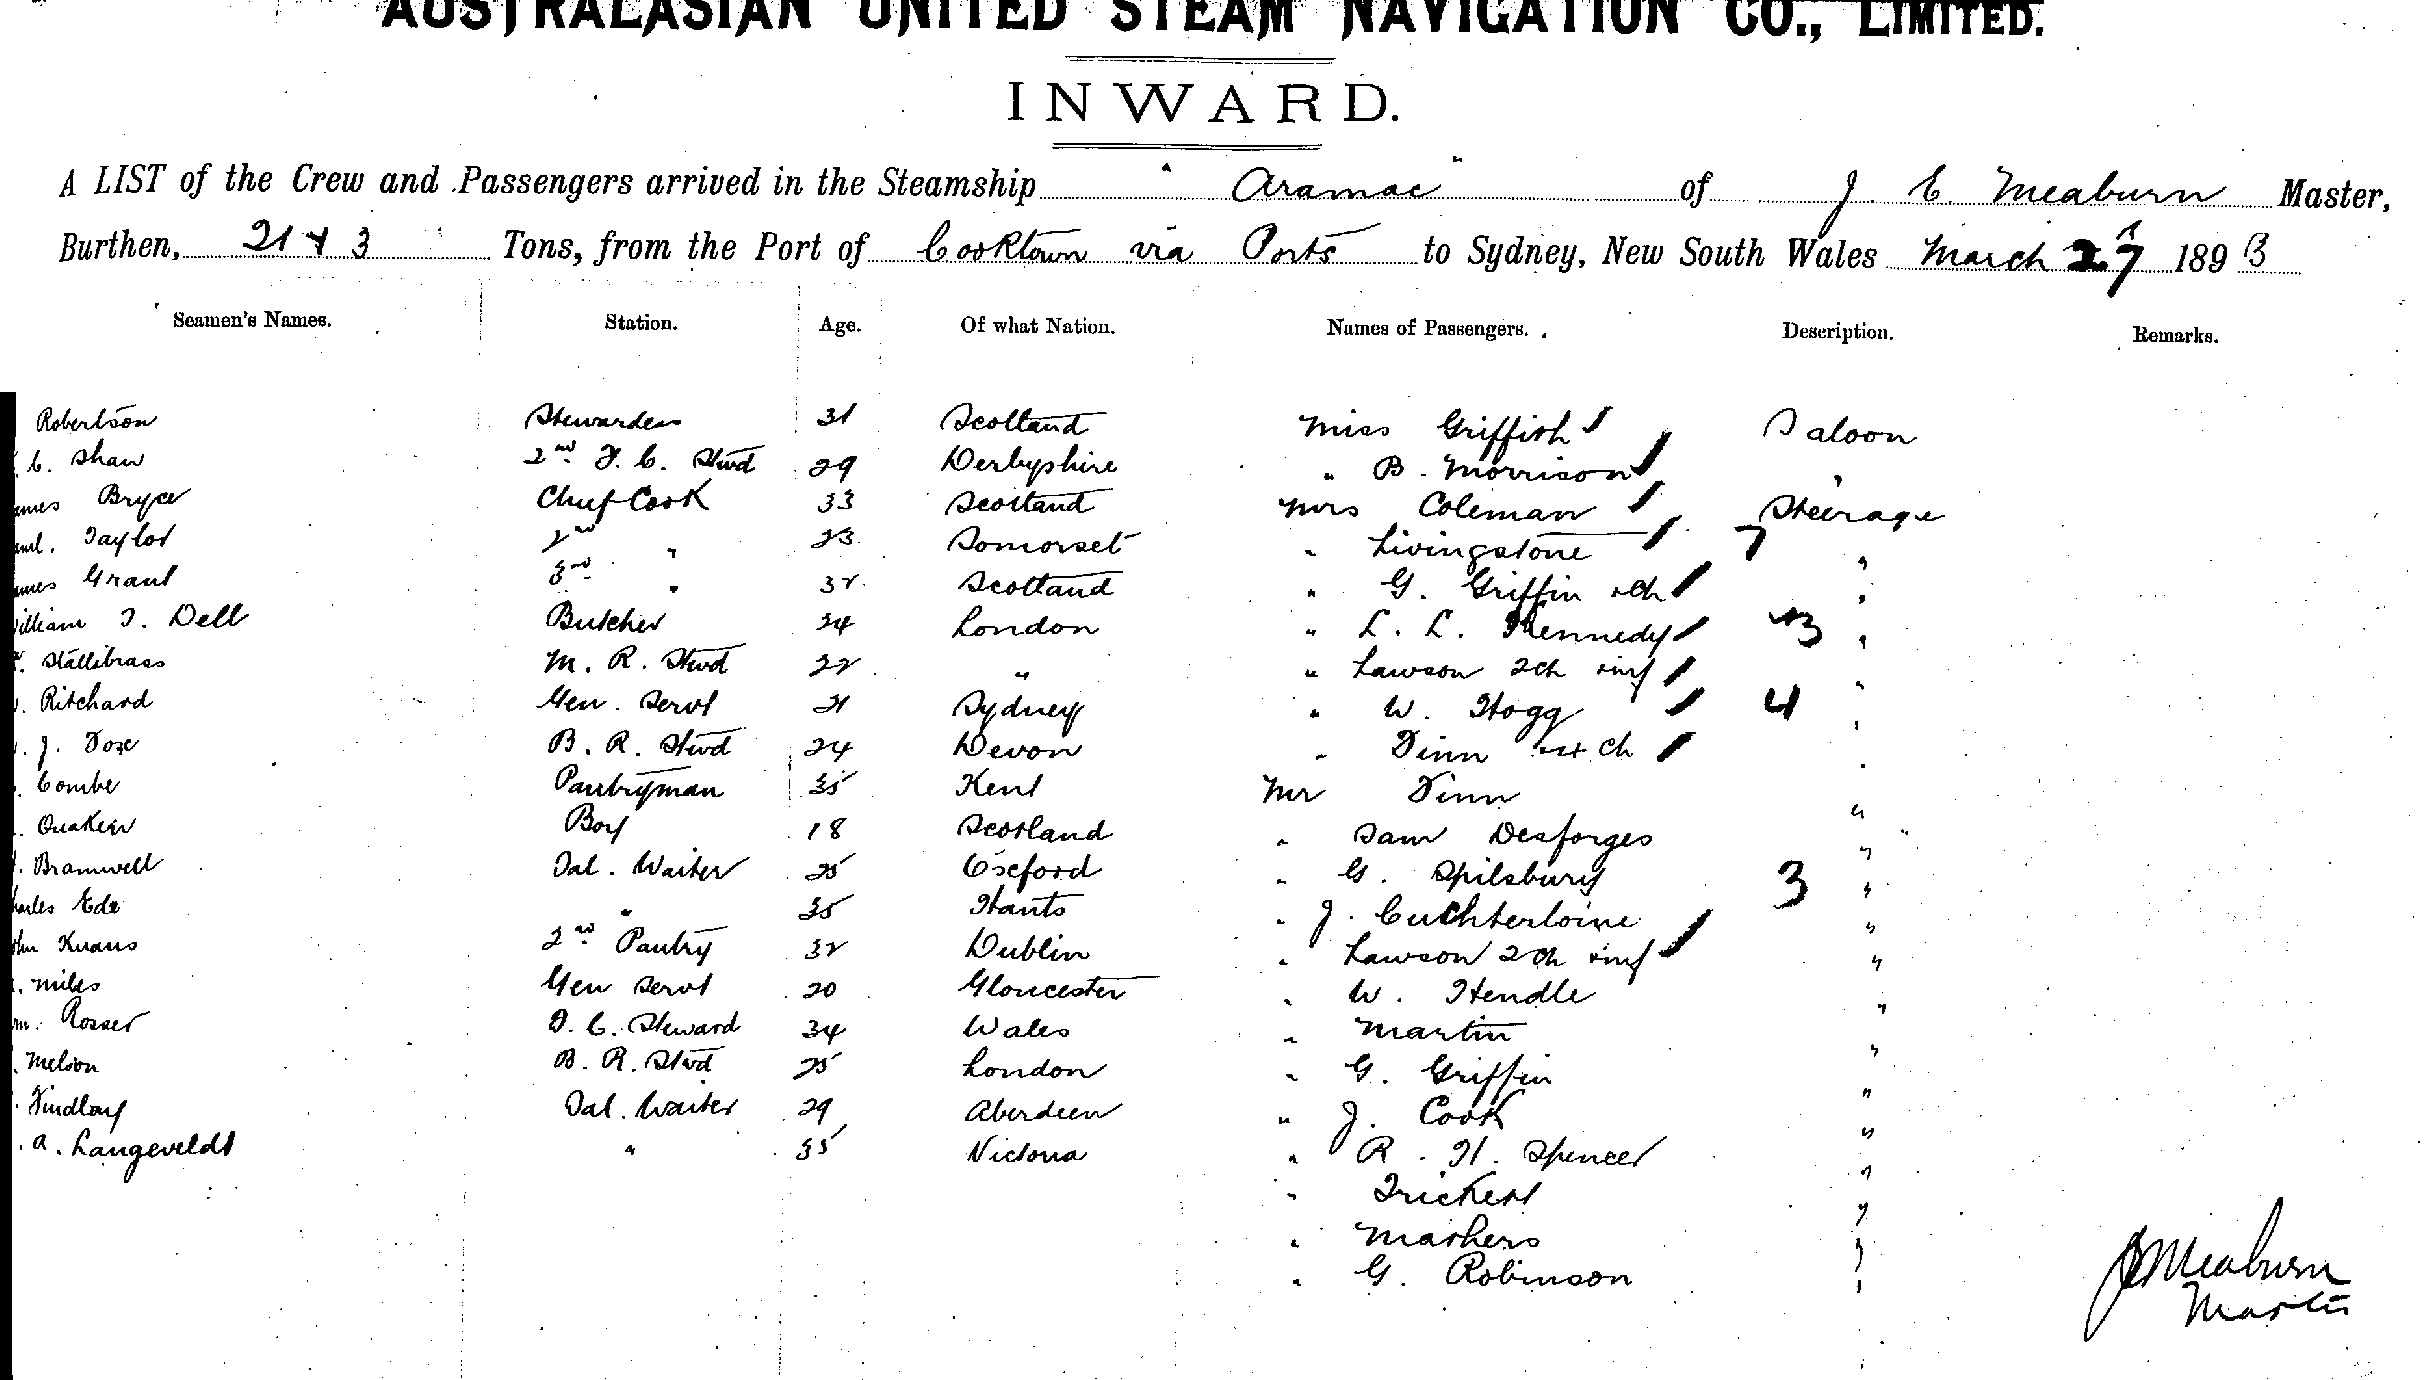 AUSTRALASIAN UNITED STEAM NAVIGATION CO., LIMITED.
INWARD.
A LIST of the Crew and Passengers arrived in the Steamship "Aramac" of J. C. Meaburn Master,
Burthen, 21 3 Tons, from the Port of Cooktown via Ports to Sydney, New South Wales March 27 1893
Seamen's Names. Station. Age. Of what Nation. Names of Passengers. Description. Remarks.
Robertson Stewardess 31 Scotland Miss Griffith Saloon
C. Shaw 2nd F. C. Stwd 29 Derbyshire " B. Morrison "
ames Bryce Chief Cook 33 Scotland Mrs Coleman Steerage
Taylor 2nd " 23 Somerset " Livingstone 7 "
ames Grant 3rd " 32 Scotland " G. Griffin "
illiam T. Dell Butcher 24 London " L. L. Kennedy 3 "
Stallibrass M. R. Stwd 22 " " Lawson 2ch inf "
Ritchard Gen. Servt 21 Sydney " W. Hogg 4 "
J. Toze B. R. Stwd 24 Devon " Finn ch "
Combe Pantryman 35 Kent Mr Finn "
Quaker Boy 18 Scotland " Sam Desforges "
Bramwell Sal. Waiter 25 Oxford " G. Spilsbury 3 "
harles Ede " 35 Hants " J. Cuchterloine "
ohn Knans 2nd Pantry 32 Dublin " Lawson 2ch inf "
Miles Gen Servt 20 Gloucester " W. Hendle "
m. Rosser F. C. Steward 34 Wales " Martin "
Melson B. R. Stwd 25 London " G. Griffin "
Findlay Sal. Waiter 29 Aberdeen " J. Cook "
A. Langeveldt " 35 Victoria " R. H. Spencer "
" Trickett "
" Mathers "
" G. Robinson "
J C Meaburn
Master